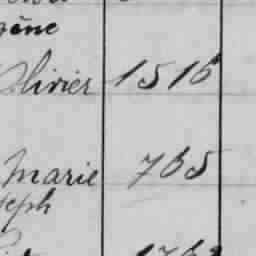 gène
Olivier 1516
Marie 765
seph